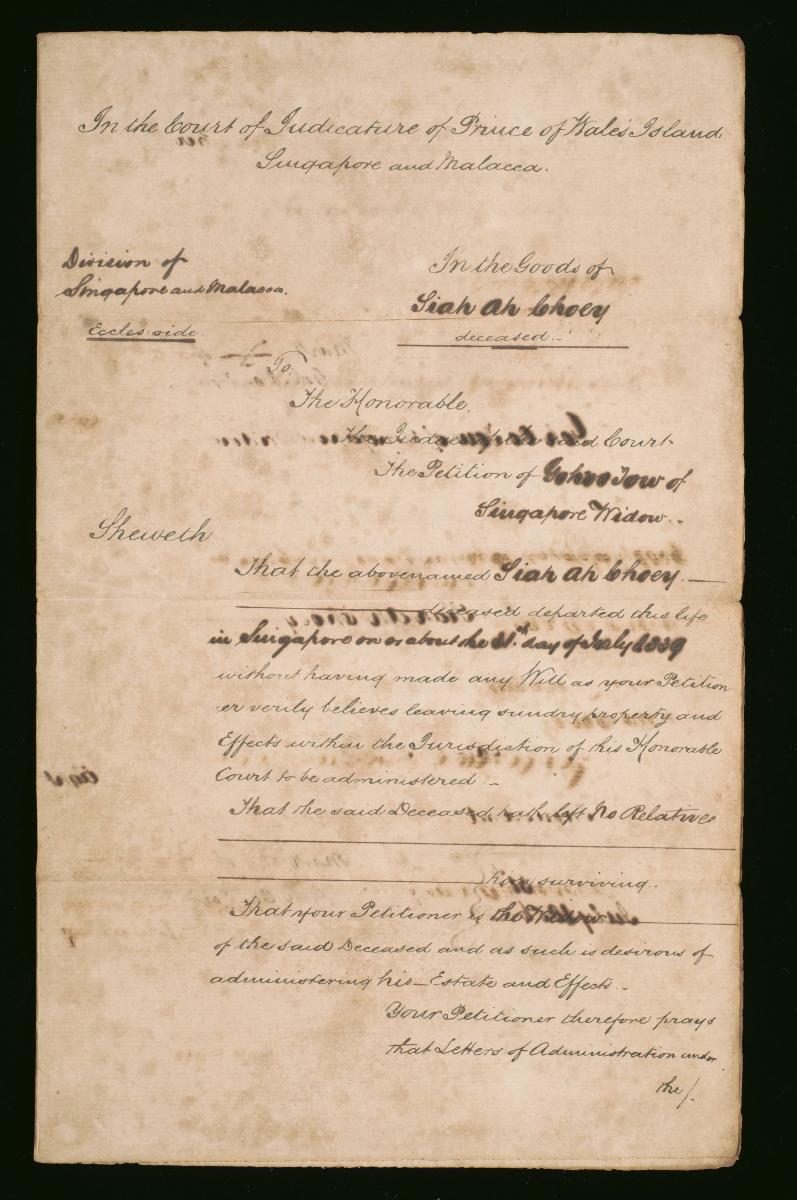 In the Court of Judicature of Prince of Wales Island
Singapore and Malacca.
Division of
Singapore and Malacca.
Eccles: side.
In the Goods of
Siah Ah Choey
deceased.-
To
The Honorable,
The Judges of the said Court
The Petition of Gohoo Tow of
Singapore Widow..
Sheweth
That the abovenamed Siah Ah Choey.
deceased departed this life
in Singapore on or about the 31st. day of July 1839
without having made any Will as your Petition
er verily believes leaving sundry property and
Effects within the Jurisdiction of this Honorable
Court to be administered -
That the said Deceased hath left No Relative
him surviving.
That your Petitioner is the Widow
of the said Deceased and as such is desirous of
administering his Estate and Effects..
Your Petitioner therefore prays
that Letters of Administration under
the/.